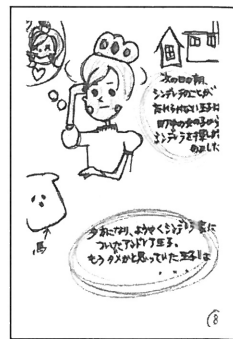 次の日の朝、
シンデレラのことが
忘れられない王子は
町中の女の子から
シンデレラを探し始
めました
馬
夕方になり、ようやくシンデレラ家に
ついたアンドレア王子。
もうダメかと思っていた王子は
・・・・
8